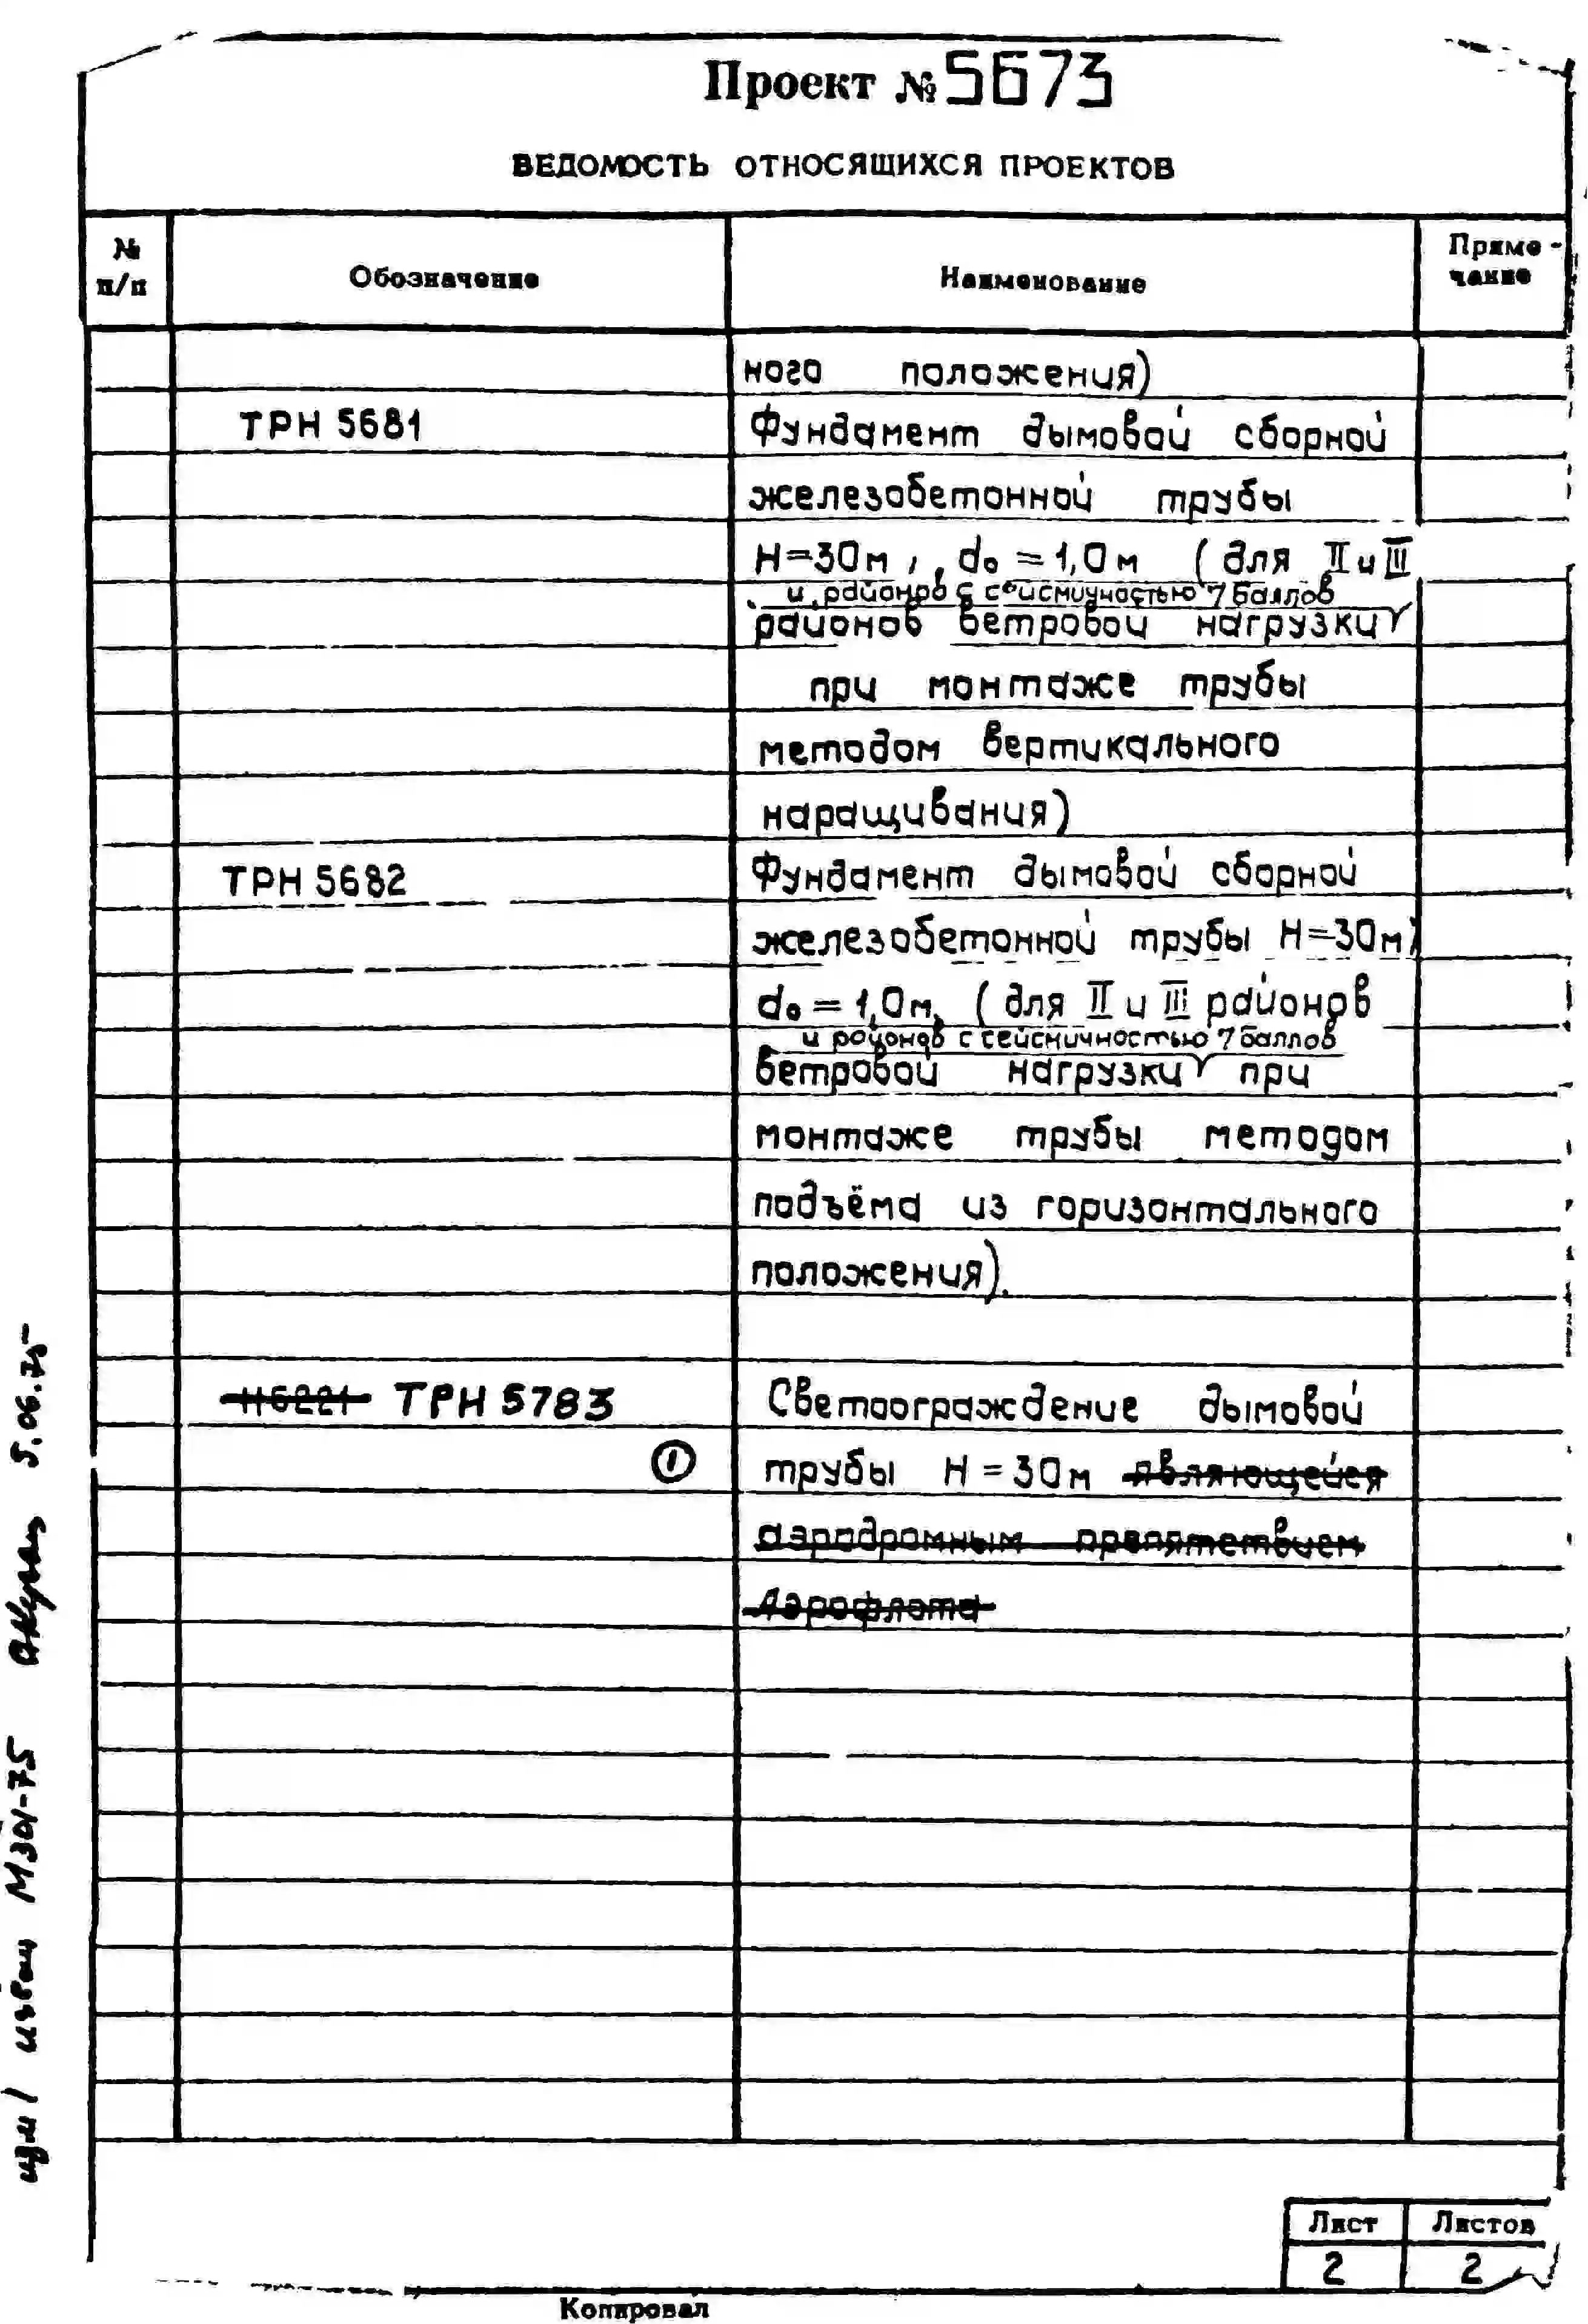 Проект № 5673
ВЕДОМОСТЬ ОТНОСЯЩИХСЯ ПРОЕКТОВ
№ п/п
Обозначение
Наименование
Приме-
чание
ного положения)
ТРН 5681
Фундамент дымовой сборной
железобетонной трубы
H=30м, d₀=1,0м (для II и III
и районов с сейсмичностью 7 баллов
районов ветровой нагрузки
при монтаже трубы
методом вертикального
наращивания)
ТРН 5682
Фундамент дымовой сборной
железобетонной трубы H=30м,
d₀=1,0м, (для II и III районов
и районов с сейсмичностью 7 баллов
ветровой нагрузки при
монтаже трубы методом
подъёма из горизонтального
положения).
Н6221 ТРН 5783
Светоограждение дымовой
1
трубы H=30м являющейся
аэродромным препятствием
Аэрофлота
изм 1 извещ М301-75 5.06.75
Лист
Листов
2
2
Копировал